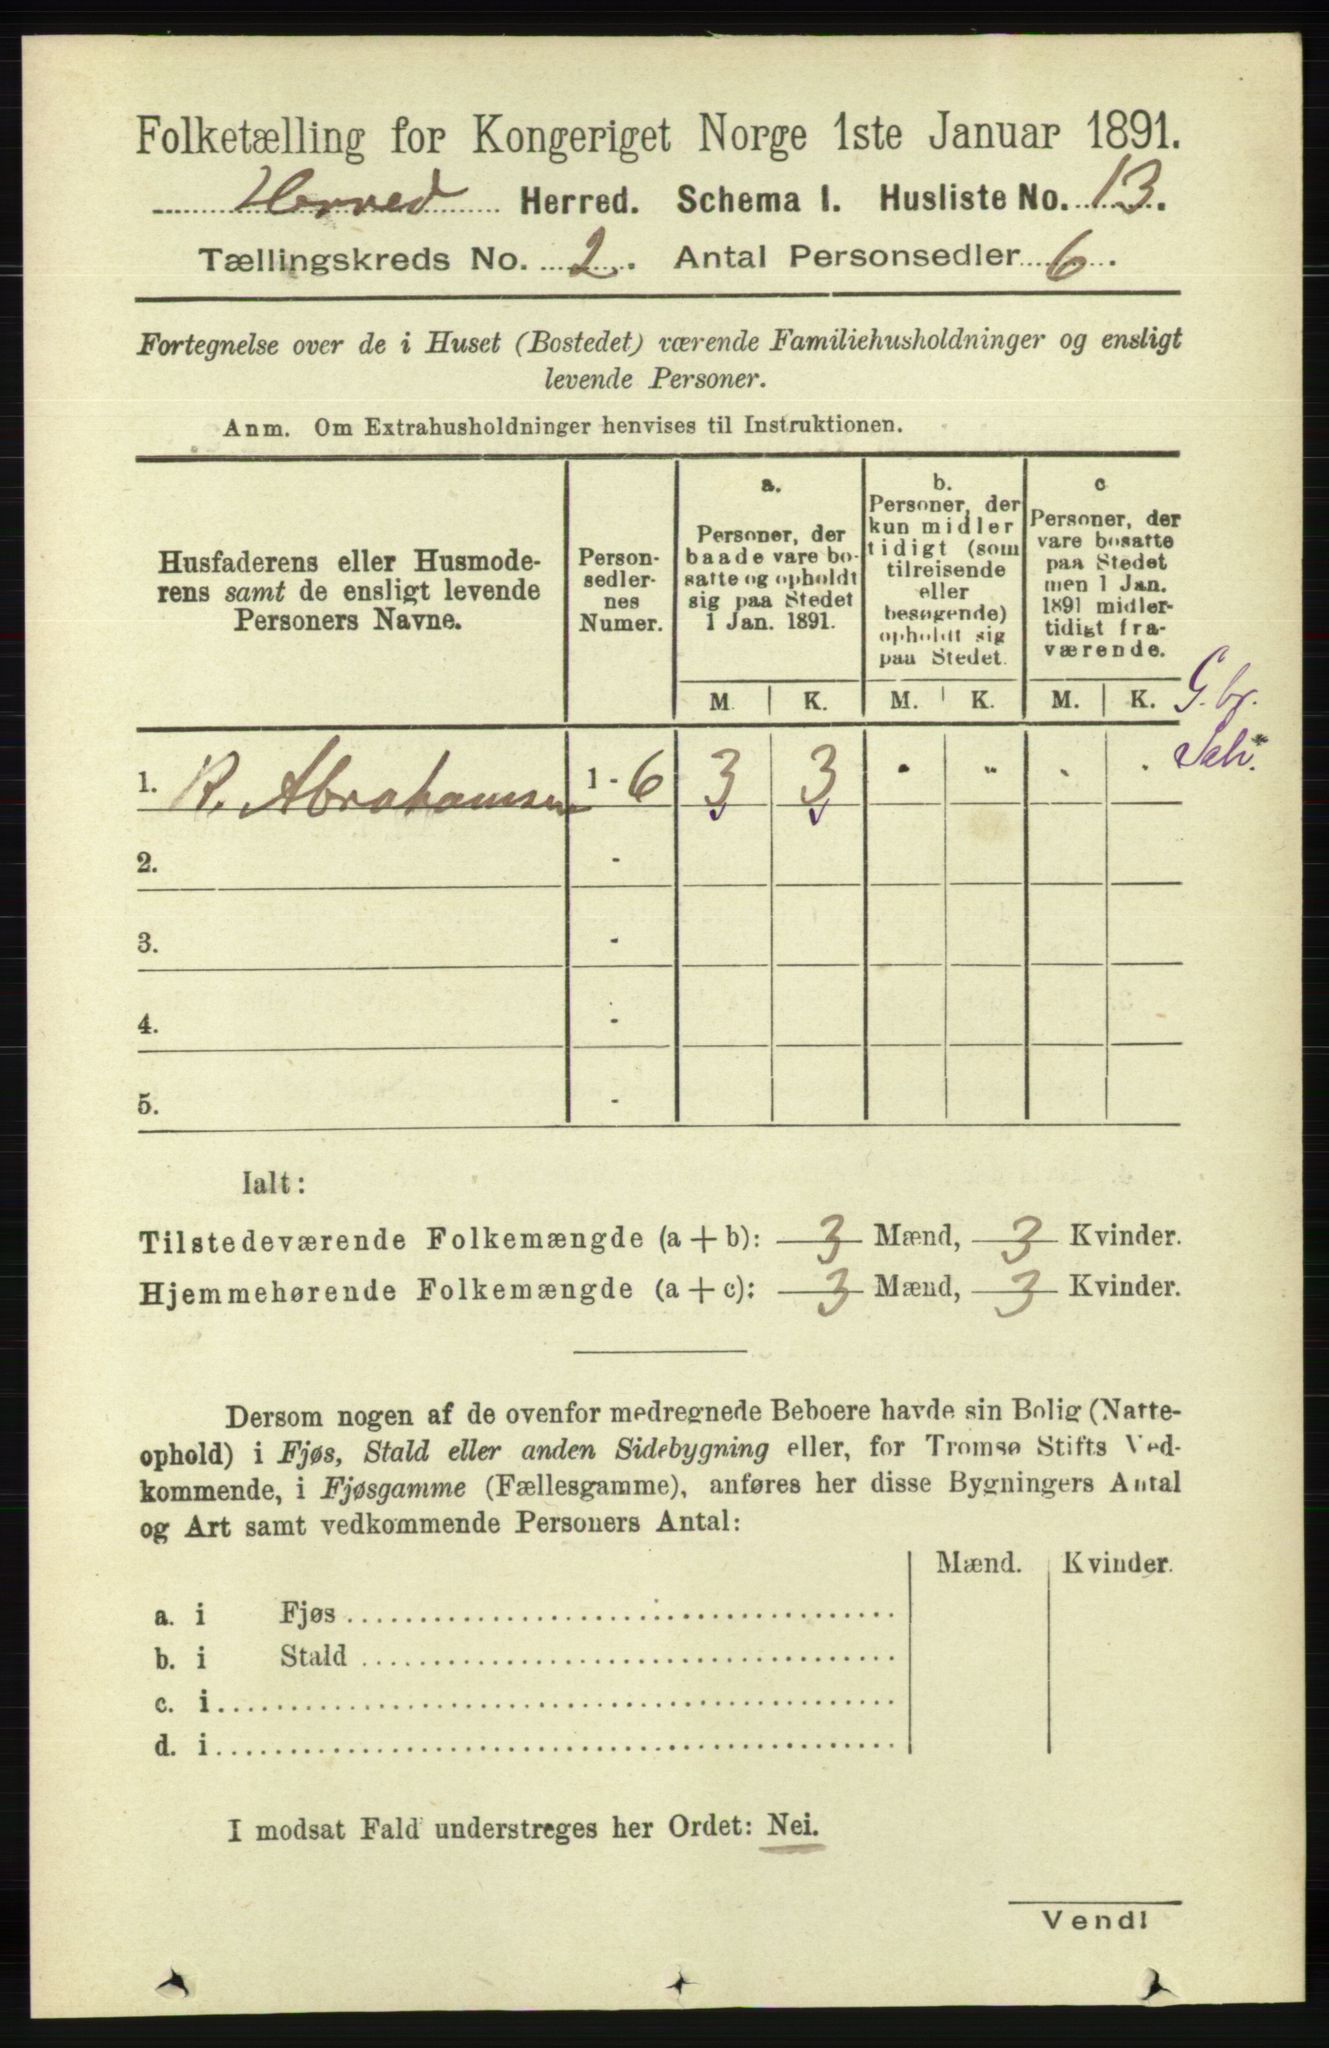 Folketælling for Kongeriget Norge 1ste Januar 1891.
Herred. Schema I. Husliste No. 13.
Tællingskreds No. 2. Antal Personsedler 6.
Fortegnelse over de i Huset (Bostedet) værende Familiehusholdninger og ensligt
levende Personer.
Anm. Om Extrahusholdninger henvises til Instruktionen.
Husfaderens eller Husmode-
rens samt de ensligt levende
Personers Navne.
Person-
sedler-
nes
Numer.
a.
Personer, der
baade vare bo-
satte og opholdt
sig paa Stedet
1 Jan. 1891.
b.
Personer, der
kun midler
tidigt (som
tilreisende
eller
besøgende)
opholdt sig
paa Stedet.
c
Personer, der
vare bosatte
paa Stedet
men 1 Jan.
1891 midler-
tidigt fra-
værende.
M. K. M. K. M. K. G. br.
Selv.
1. R. Abrahamsen 1 - 6 3 3
2. -
3. -
4. -
5. -
Ialt:
Tilstedeværende Folkemængde (a + b): 3 Mænd, 3 Kvinder.
Hjemmehørende Folkemængde (a + c): 3 Mænd, 3 Kvinder.
Dersom nogen af de ovenfor medregnede Beboere havde sin Bolig (Natte-
ophold) i Fjøs, Stald eller anden Sidebygning eller, for Tromsø Stifts Ved-
kommende, i Fjøsgamme (Fællesgamme), anføres her disse Bygningers Antal
og Art samt vedkommende Personers Antal:
Mænd. Kvinder.
a. i Fjøs
b. i Stald
c. i
d. i
I modsat Fald understreges her Ordet: Nei.
Vend!